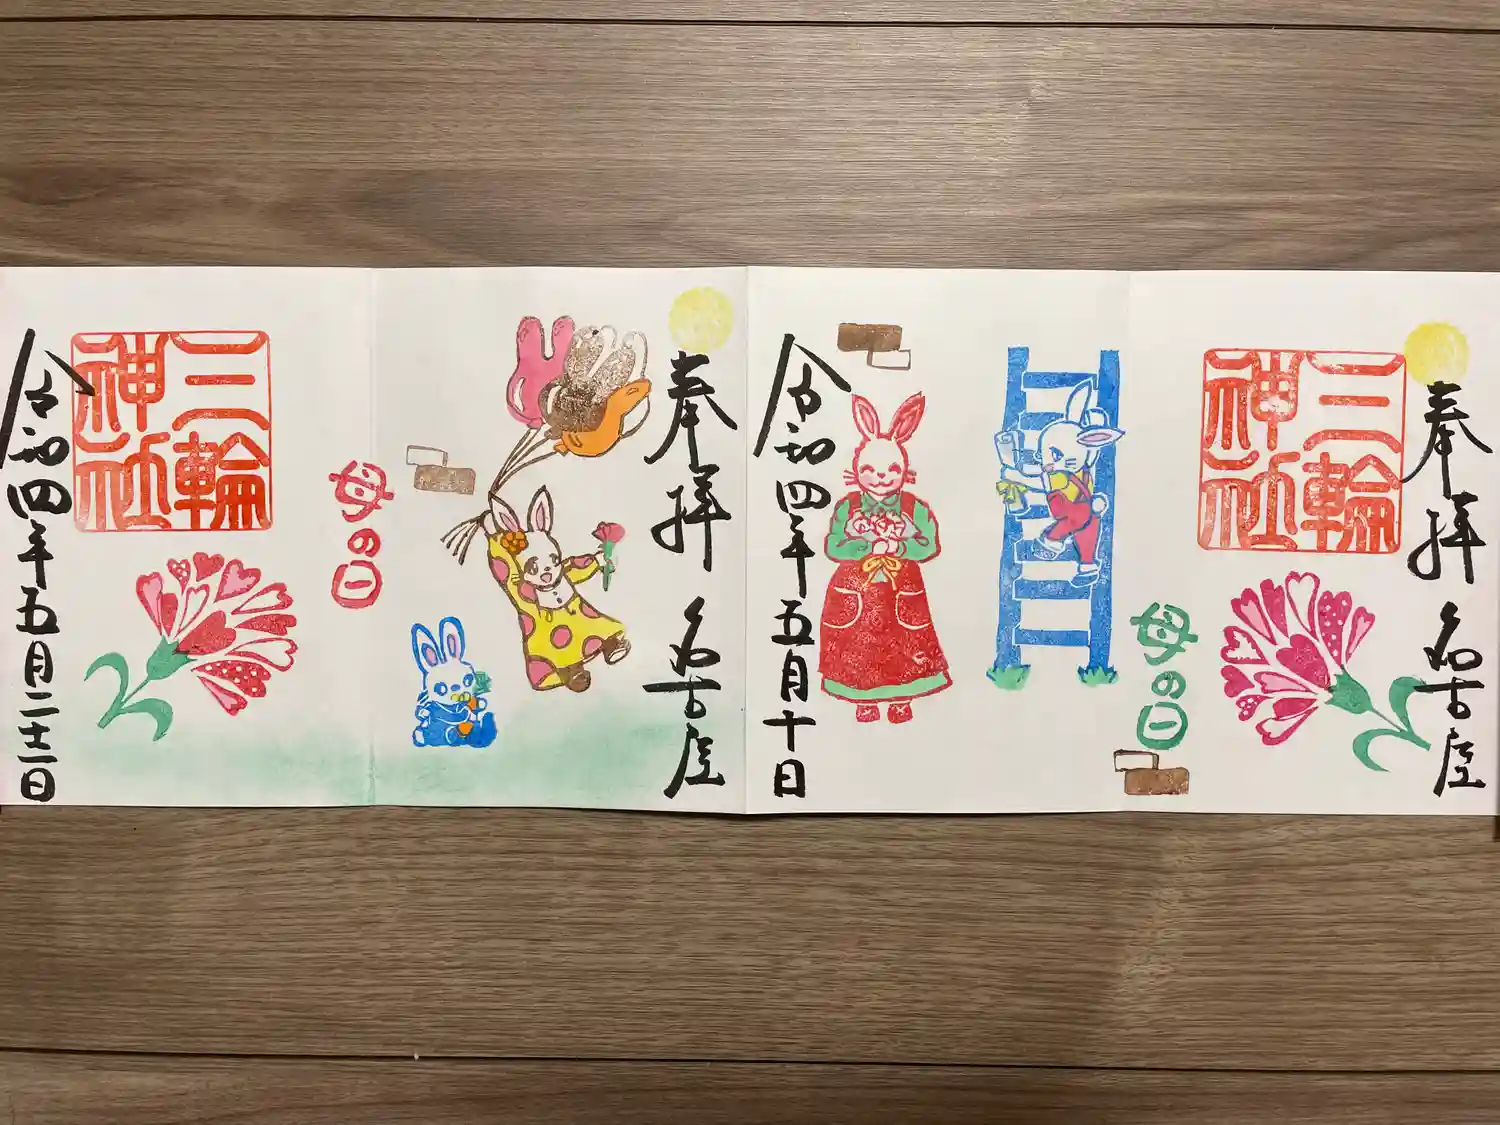 奉拝 名古屋
三輪
神社
母の日
令和四年五月十日
奉拝 名古屋
母の日
三輪
神社
令和四年五月二十二日